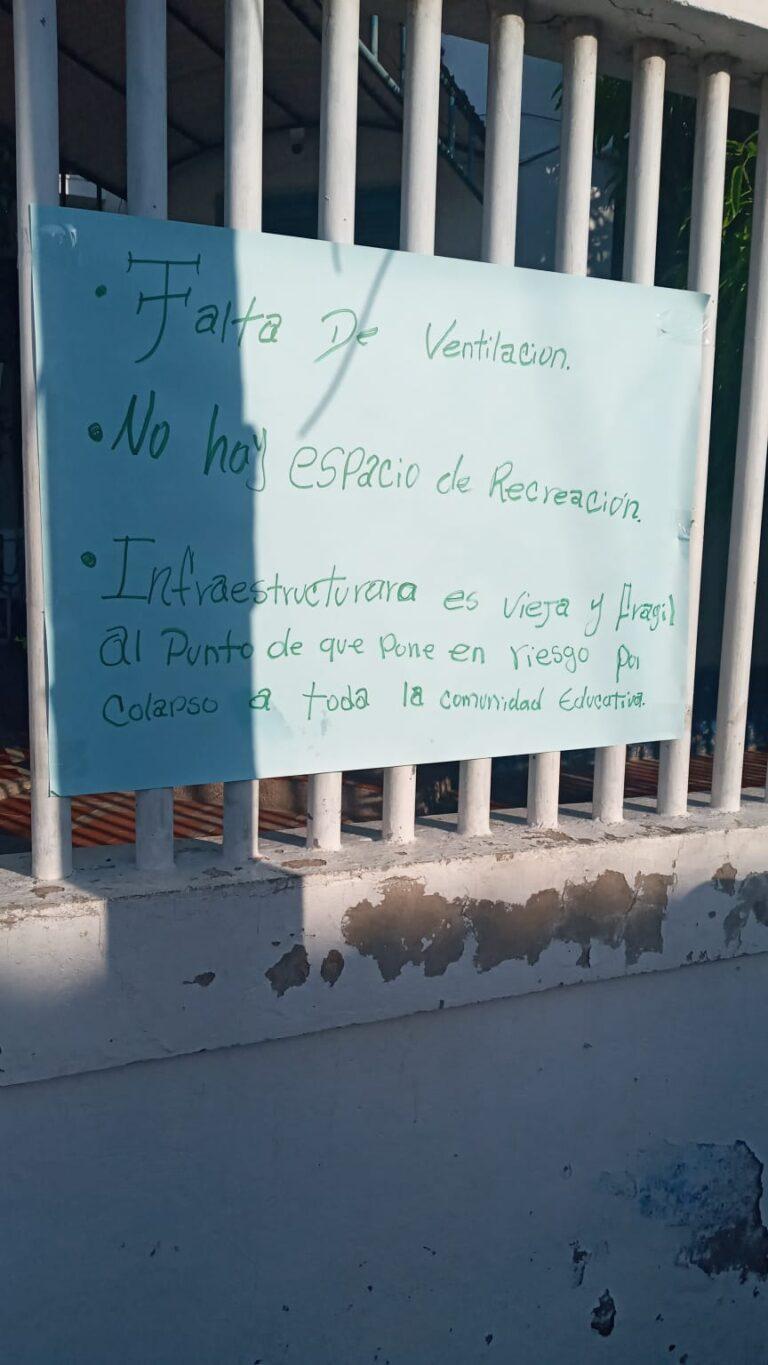 • Falta De Ventilacion.
• No hay espacio de Recreación.
• Infraestructurara es vieja y fragil
al Punto de que pone en riesgo por
Colapso a toda la comunidad Educativa.